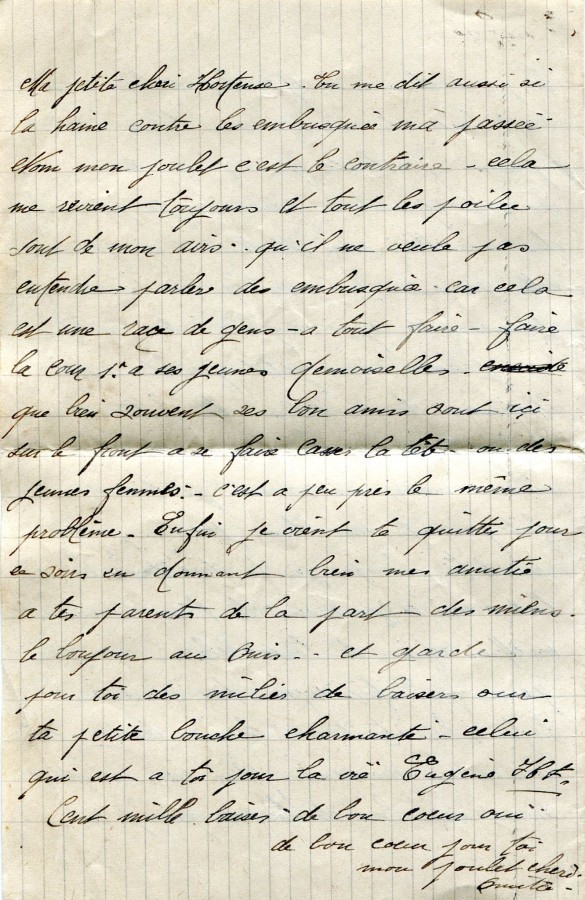 Ma petite cheri Hortense. Tu me dit aussi si
la haine contre les embusquée m'a passée
Nom mon poulet c'est le contraire - cela
me revient toujours et tout les poilu
sont de mon airs - qu'il ne veule pas
entendre parler des embusquée car cela
est une race de gens - a tout faire - faire
la cour a ses jeunes demoiselles -
que bien souvent ses bon amis sont içi
sur le front a se faire casser la tête - ou des
jeunes femmes - c'est a peu pres le même
problème - Enfin je vient te quitter pour
ce soir en donnant bien mes amitié
a tes parents de la part des miens -
le bonjour au - et garde
pour toi des milier de baisers sur
ta petite bouche charmante - celui
qui est a toi pour la vië Eugène
Cent mille baisers de bon coeur oui
de bon coeur pour toi
mon poulet cheri -